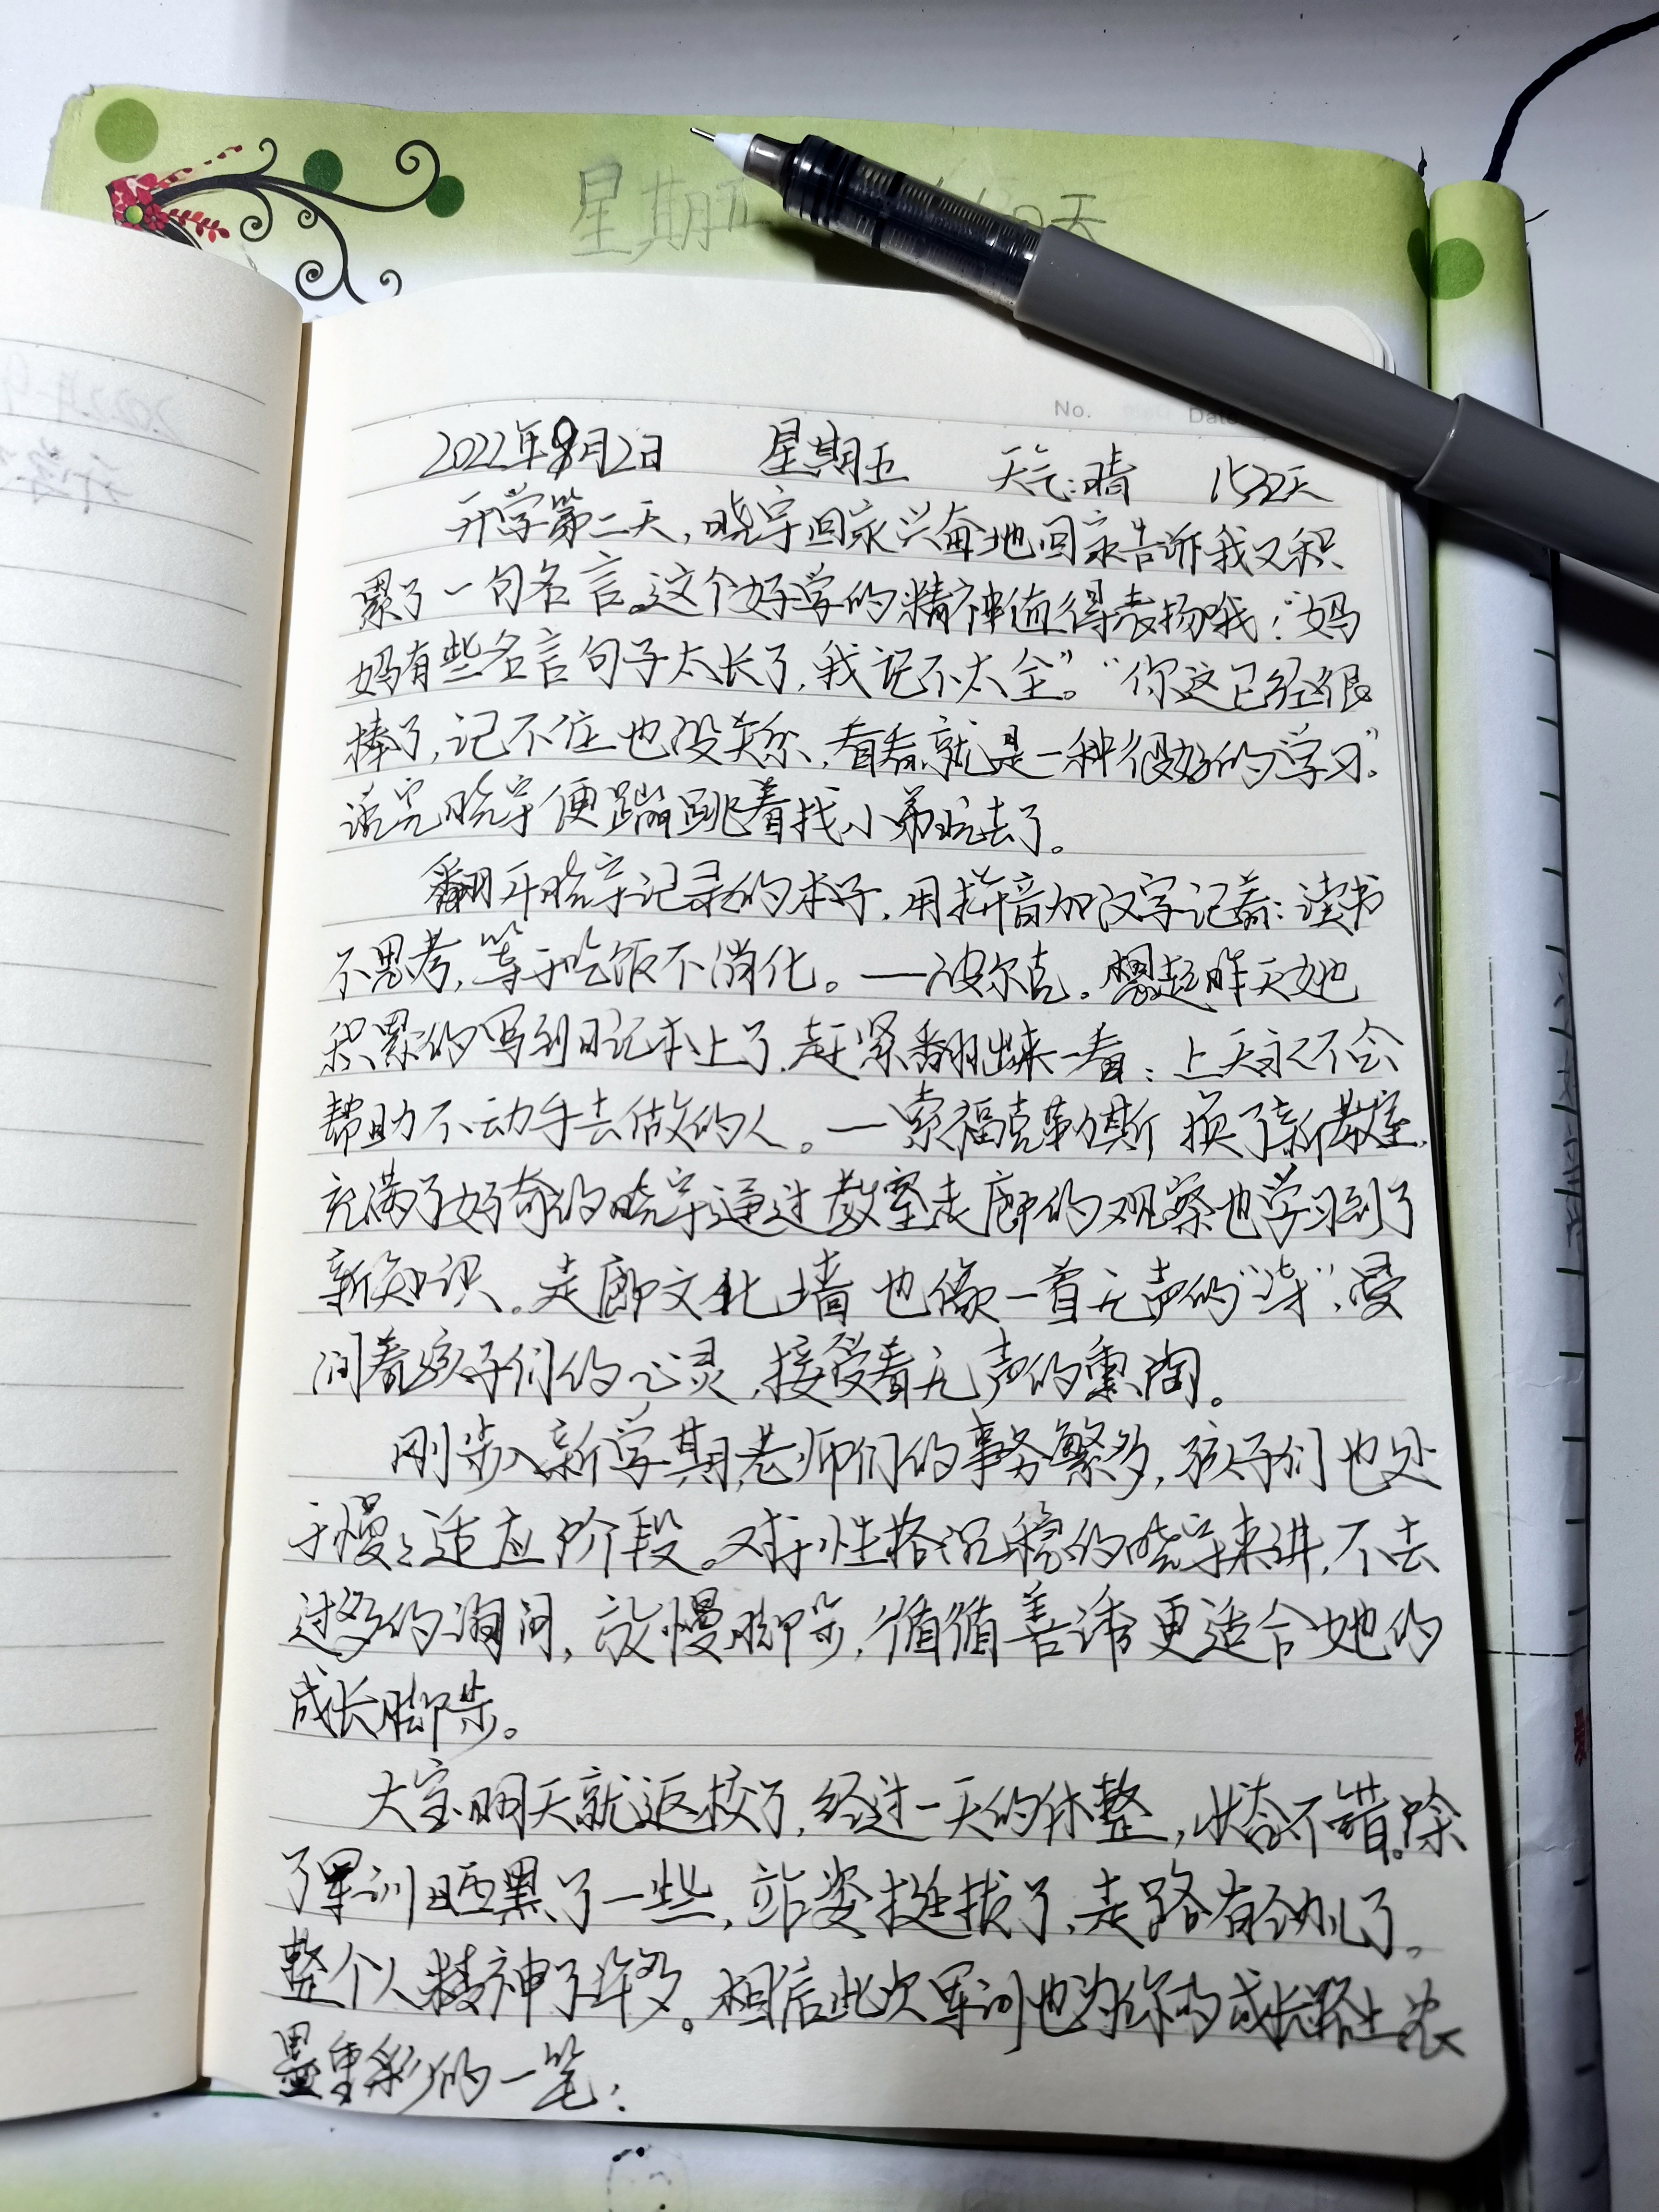 星期五
天
No.
Date
2022年9月2日 星期五 天气:晴 1532天
开学第二天,晓宇回家兴奋地回家告诉我又积
累了一句名言。这个好学的精神值得表扬哦!“妈
妈有些名言句子太长了,我记不太全。”“你这已经很
棒了,记不住也没关系,看看就是一种很好的“学习”。
话完晓宇便蹦跳着找小弟玩去了。
翻开晓宇记录的本子,用拼音加汉字记着:读书
不思考,等于吃饭不消化。——波尔克。想起昨天她
积累的写到日记本上了,赶紧翻出来一看:上天永不会
帮助不动手去做的人。—索福克勒斯 换了新教室,
充满了好奇的晓宇通过教室走廊的观察也学习到了
新知识。走廊文化墙也像一首无声的“诗”,浸
润着孩子们的心灵,接受着无声的熏陶。
刚步入新学期,老师们的事务繁多,孩子们也处
于慢慢适应阶段。对于性格沉稳的晓宇来讲,不去
过多的询问,放慢脚步,循循善诱更适合她的
成长脚步。
大宝明天就返校了,经过一天的休整,状态不错。除
了军训晒黑了一些,站姿挺拔了,走路有劲儿了。
整个人精神了许多。相信此次军训也为你的成长路上浓
墨重彩的一笔!